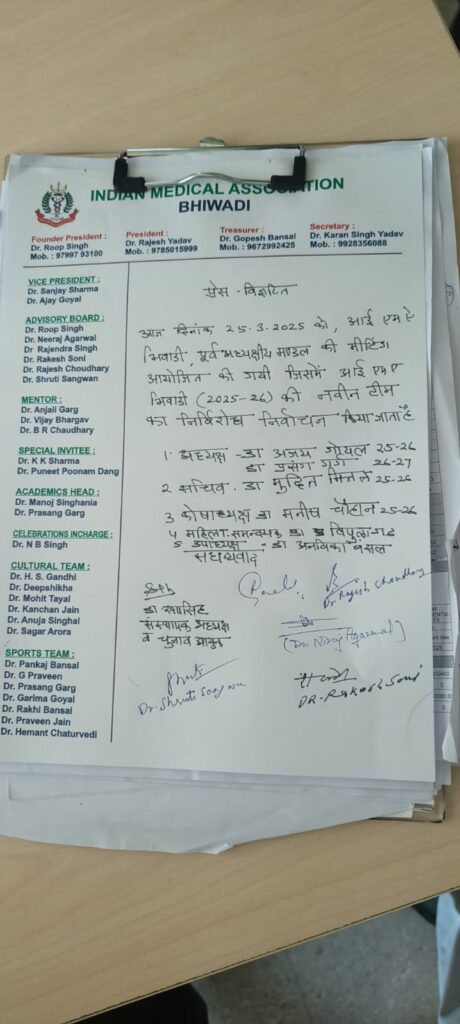 INDIAN MEDICAL ASSOCIATION
BHIWADI
Founder President :
Dr. Roop Singh
Mob. : 79997 93100
President :
Dr. Rajesh Yadav
Mob. : 9785015999
Treasurer :
Dr. Gopesh Bansal
Mob. : 9672992425
Secretary :
Dr. Karan Singh Yadav
Mob. : 9928356088
VICE PRESIDENT :
Dr. Sanjay Sharma
Dr. Ajay Goyal
ADVISORY BOARD :
Dr. Roop Singh
Dr. Neeraj Agarwal
Dr. Rajendra Singh
Dr. Rakesh Soni
Dr. Rajesh Choudhary
Dr. Shruti Sangwan
MENTOR :
Dr. Anjali Garg
Dr. Vijay Bhargav
Dr. B R Chaudhary
SPECIAL INVITEE :
Dr. K K Sharma
Dr. Puneet Poonam Dang
ACADEMICS HEAD :
Dr. Manoj Singhania
Dr. Prasang Garg
CELEBRATIONS INCHARGE :
Dr. N B Singh
CULTURAL TEAM :
Dr. H. S. Gandhi
Dr. Deepshikha
Dr. Mohit Tayal
Dr. Kanchan Jain
Dr. Anuja Singhal
Dr. Sagar Arora
SPORTS TEAM :
Dr. Pankaj Bansal
Dr. G Praveen
Dr. Prasang Garg
Dr. Garima Goyal
Dr. Rakhi Bansal
Dr. Praveen Jain
Dr. Hemant Chaturvedi
प्रेस - विज्ञप्ति
आज दिनांक 25.3.2025 को, आई एम ऐ
भिवाडी, पूर्व अध्यक्षीय मण्डल की मीटिंग
आयोजित की गयी जिसमें आई एम ए
भिवाडी (2025-26) की नवीन टीम
का निर्विरोध निर्वाचन किया जाता है
1 अध्यक्ष - डा अजय गोयल 25-26
डा प्रसंग गर्ग 26-27
2 सचिव - डा मुदित मित्तल 25-26
3 कोषाध्यक्ष डा मनीष चौहान 25-26
4 महिला समन्वयक डा विपुला गर्ग
5 उपाध्यक्ष : डा अनामिका बंसल
सधन्यवाद
डा रूपसिंह
संस्थापक अध्यक्ष
व चुनाव आयुक्त
Dr Rajesh Choudhary
(Dr. Niraj Agarwal)
Dr. Shruti Sangwan
DR. Rakesh Soni